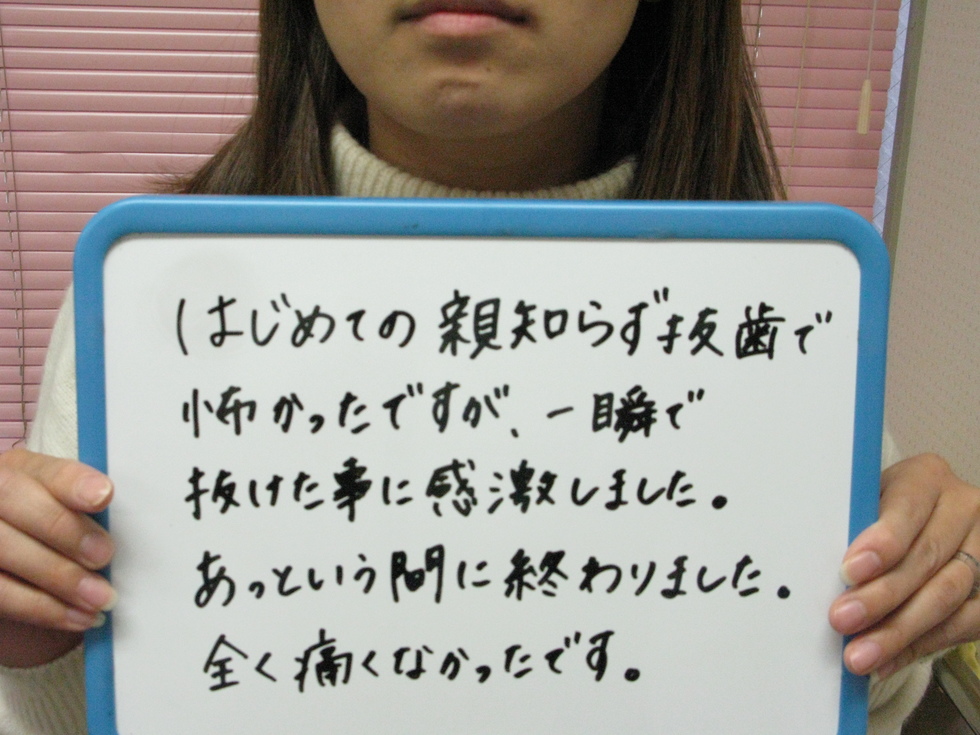 はじめての親知らず抜歯で
怖かったですが、一瞬で
抜けた事に感激しました。
あっという間に終わりました。
全く痛くなかったです。